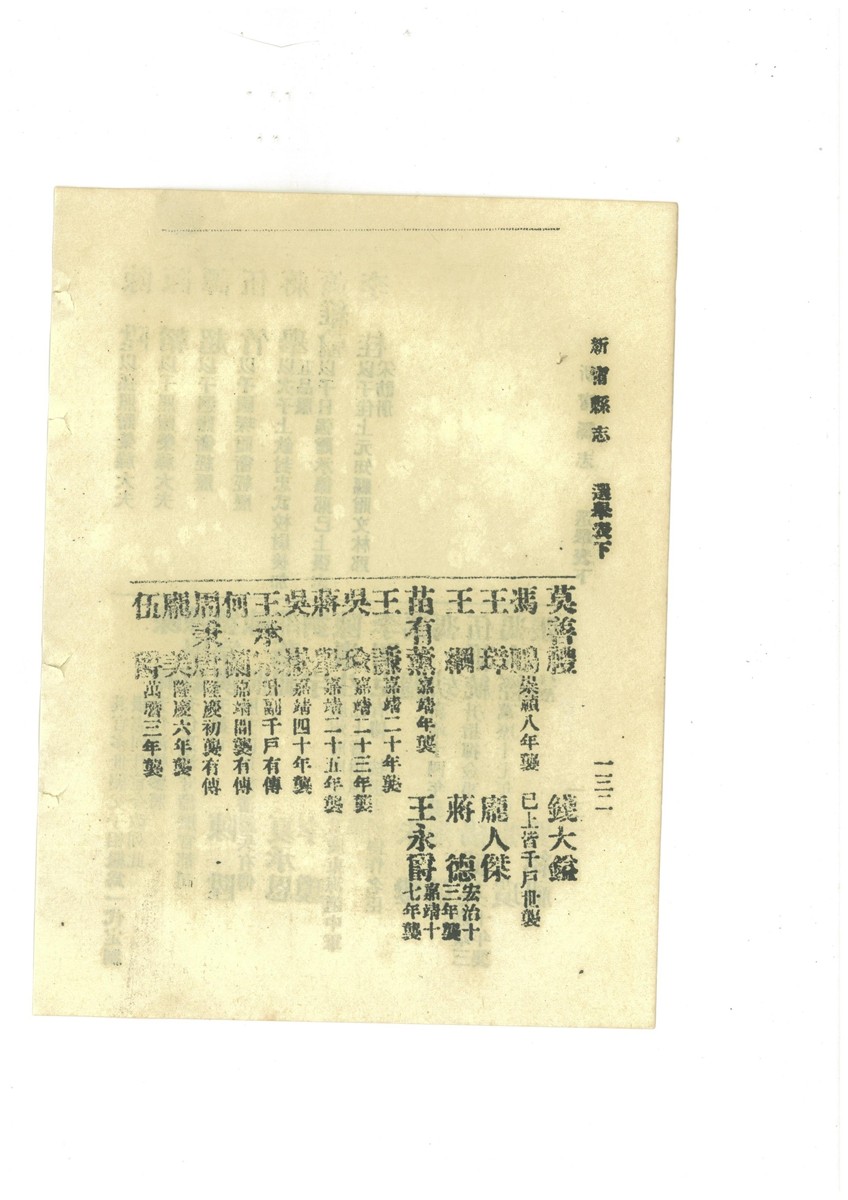 新甯縣志 選舉表下 一三二
莫善禮 錢大鎰
馮鵬 崇禎八年襲 已上皆千戶世襲
王璋 龐人傑
王綱 蔣德 宏治十三年襲
苗有薰 嘉靖年襲 王永爵 嘉靖十七年襲
王謙 嘉靖二十年襲
吳 嘉靖二十三年襲
蔣 嘉靖二十五年襲
吳 嘉靖四十年襲
王承 升副千戶有傳
何 嘉靖間襲有傳
周秉唐 隆慶初襲有傳
龐美 隆慶六年襲
伍爵 萬曆三年襲